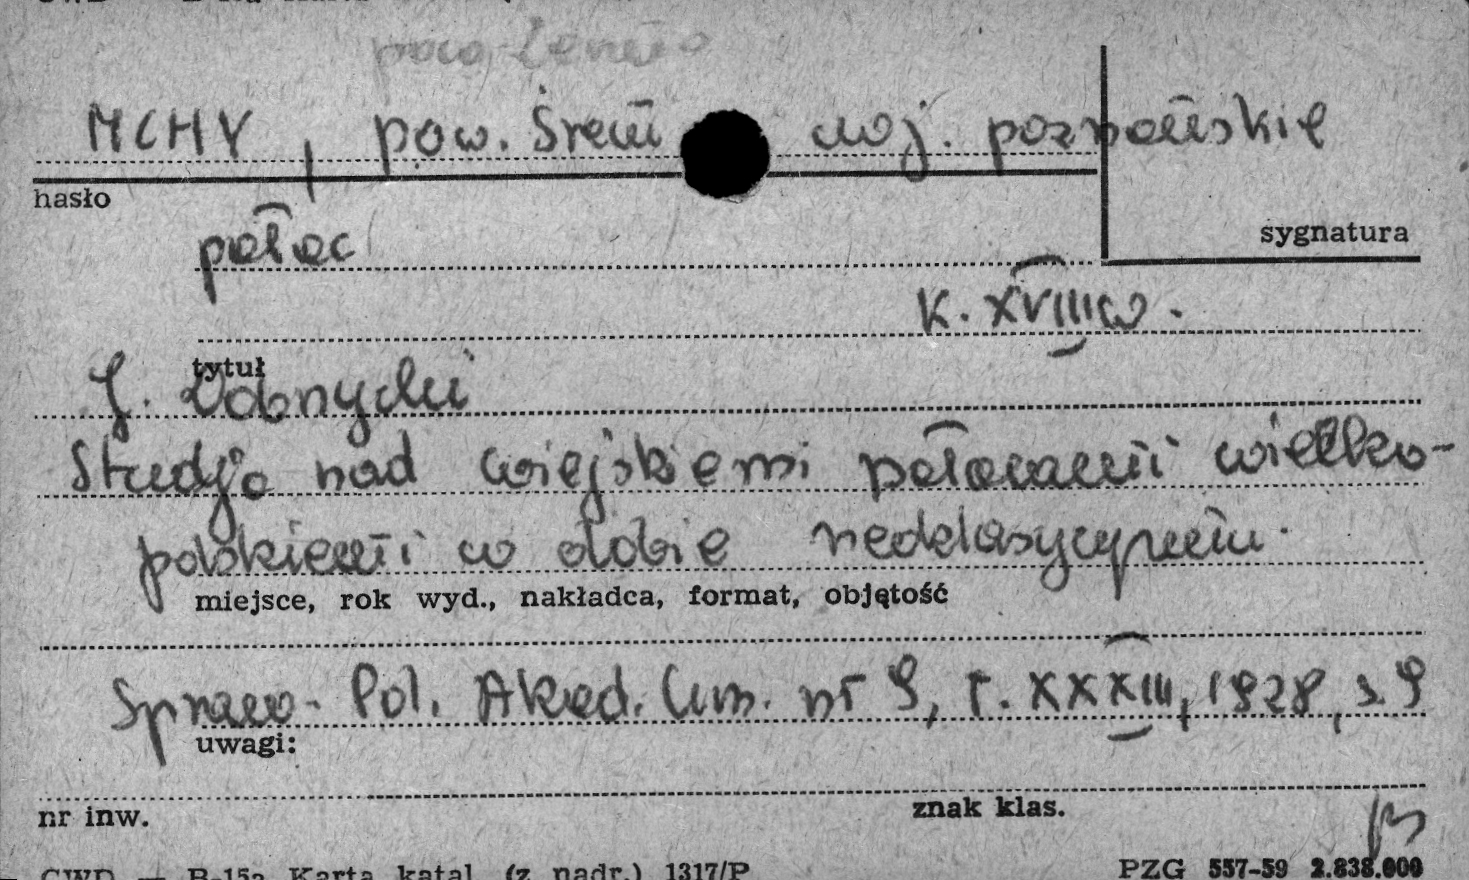 MCHY, pow. Śrem woj. poznańskie
hasło
pałac
sygnatura
k. XVIII w.
tytuł
J. Dobrzycki
Studja nad wiejskiemi pałacami wielko-
polskiemi w dobie neoklasycyzmu.
miejsce, rok wyd., nakładca, format, objętość
Spraw. Pol. Akad. Um. nr 9, T. XXXIII, 1928, s. 9
uwagi:
nr inw.
znak klas.
CWD — B-15a Karta katal. (z nadr.) 1317/P
PZG 557-59 2.838.000